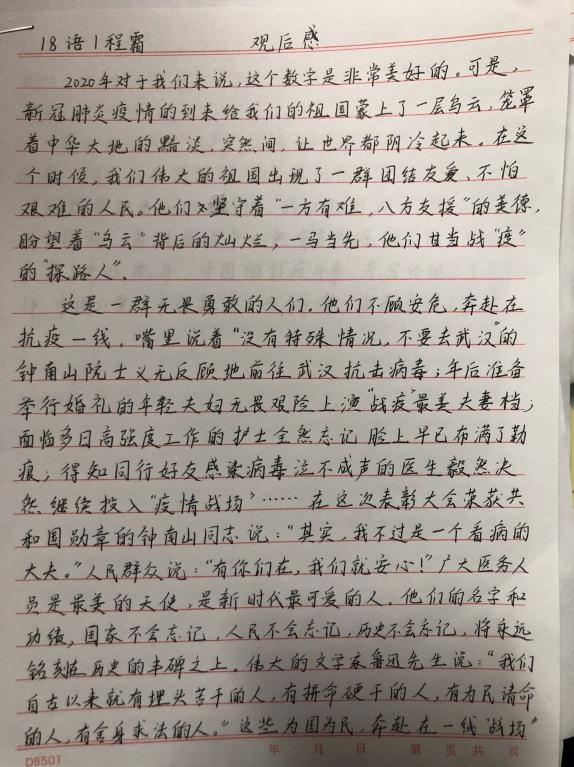 18语1程霜 观后感
2020年对于我们来说,这个数字是非常美好的。可是,
新冠肺炎疫情的到来给我们的祖国蒙上了一层乌云,笼罩
着中华大地的黯淡,突然间,让世界都阴冷起来。在这
个时候,我们伟大的祖国出现了一群团结友爱、不怕
艰难的人民。他们坚守着“一方有难,八方支援”的美德,
盼望着“乌云”背后的灿烂,一马当先,他们甘当战“疫”
的“探路人”。
这是一群无畏勇敢的人们。他们不顾安危,奔赴在
抗疫一线。嘴里说着“没有特殊情况,不要去武汉”的
钟南山院士义无反顾地前往武汉抗击病毒;年后准备
举行婚礼的年轻夫妇无畏艰险上演“战疫”最美夫妻档;
面临多日高强度工作的护士全然忘记脸上早已布满了勒
痕;得知同行好友感染病毒泣不成声的医生毅然决
然继续投入“疫情战场”……在这次表彰大会荣获共
和国勋章的钟南山同志说:“其实,我不过是一个看病的
大夫。”人民群众说:“有你们在,我们就安心!”广大医务人
员是最美的天使,是新时代最可爱的人。他们的名字和
功绩,国家不会忘记,人民不会忘记,历史不会忘记,将永远
铭刻在历史的丰碑之上。伟大的文学家鲁迅先生说:“我们
自古以来就有埋头苦干的人,有拼命硬干的人,有为民请命
的人,有舍身求法的人。”这些为国为民,奔赴在一线“战场”
DB501 年 月 日 第 页 共 页